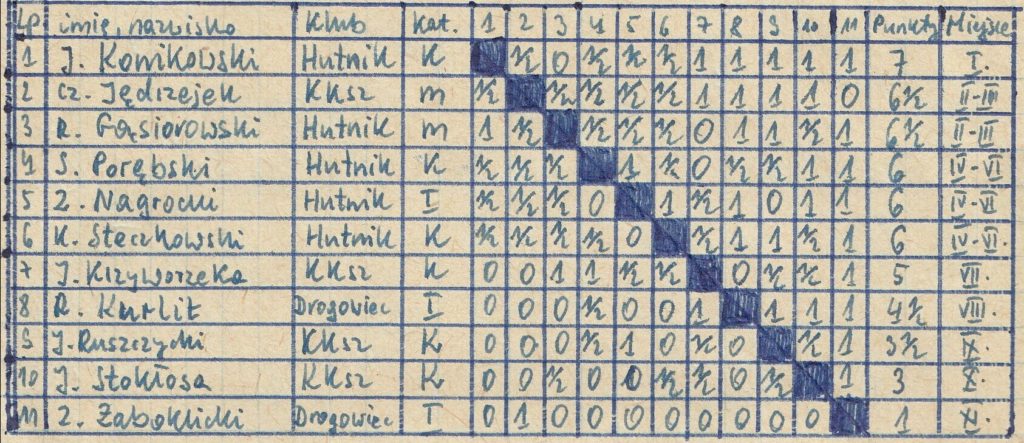 Lp imię, nazwisko Klub Kat. 1 2 3 4 5 6 7 8 9 10 11 Punkty Miejsce
1 J. Konikowski Hutnik K ½ 0 ½ ½ ½ 1 1 1 1 1 7 I.
2 Cz. Jędrzejek KKSz m ½ ½ ½ ½ ½ 1 1 1 1 0 6½ II-III
3 R. Gąsiorowski Hutnik m 1 ½ ½ ½ ½ 0 1 1 ½ 1 6½ II-III
4 S. Porębski Hutnik K ½ ½ ½ 1 ½ 0 ½ ½ 1 1 6 IV-VI
5 Z. Nagrocki Hutnik I ½ ½ ½ 0 1 ½ 1 0 1 1 6 IV-VI
6 K. Steczkowski Hutnik K ½ ½ ½ ½ 0 ½ 1 1 ½ 1 6 IV-VI.
7 J. Krzyworzeka KKSz K 0 0 1 1 ½ ½ 0 ½ ½ 1 5 VII.
8 R. Kurlit Drogowiec I 0 0 0 ½ 0 0 1 1 1 1 4½ VIII.
9 J. Ruszczycki KKSz K 0 0 0 ½ 1 0 ½ 0 ½ 1 3½ IX.
10 J. Stokłosa KKSz K 0 0 ½ 0 0 ½ ½ 0 ½ 1 3 X.
11 Z. Żaboklicki Drogowiec I 0 1 0 0 0 0 0 0 0 0 1 XI.